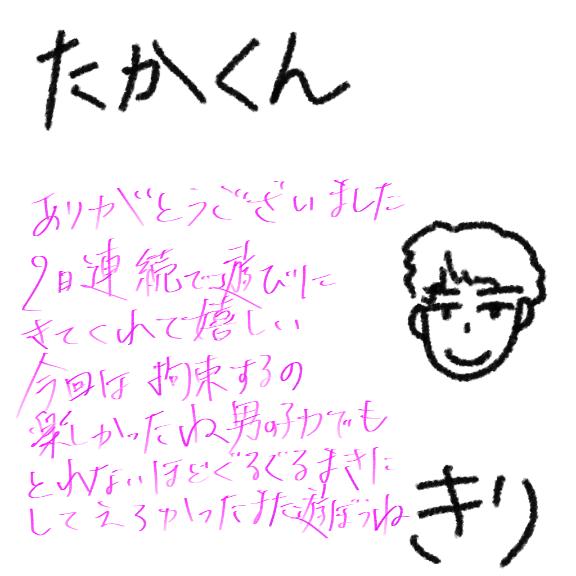 たかくん
ありがとうございました
9日連続で遊びに
きてくれて嬉しい
今回は拘束するの
楽しかったね男の子力でも
とれないほどぐるぐるまきに
してえろかったまた遊ぼうね
きり